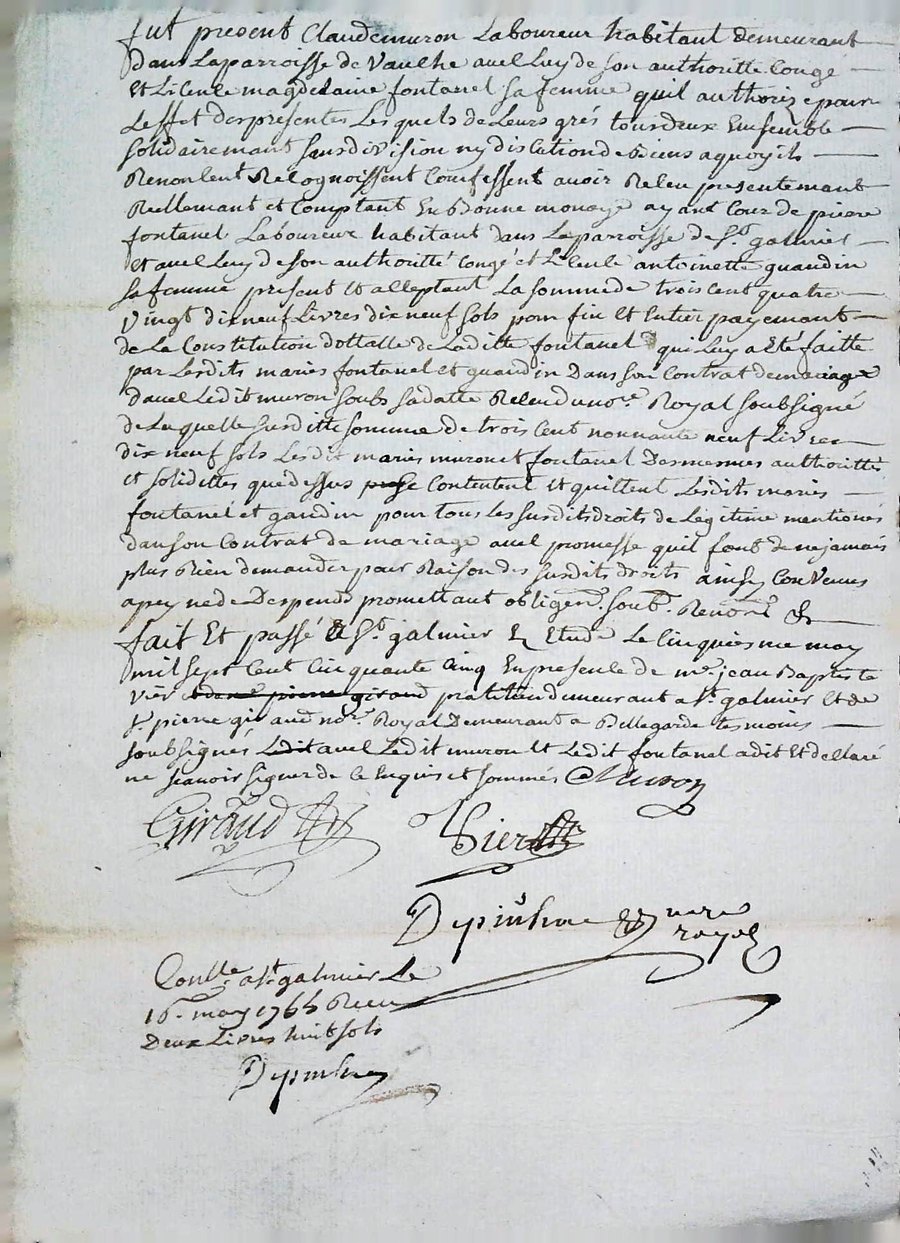 fut present Claude muron Laboureur habitant demeurant
Dans Laparroisse de Vauche avec Luy de son authoritté Congé
et Licence magdelaine fontanel sa femme quil authorize pour
Leffet des presentes Lesquels de Leurs grés tous deux Ensemble
solidairemant sans division ny discution de Biens a quoy ils
Renoncent Recognoissent Comfessent avoir Receu presentemant
Reellemant et Comptant En bonne monoye ayant Cour de pierre
fontanel Laboureur habitant dans Laparroisse de St. galmier
et avec Luy de son authoritté Congé et Licence antoinette guandin
sa femme present et acceptant La somme de trois cent quatre
vingt dix neuf Livres dix neuf sols pour fin et Entier payemant
de La Constitution dottalle de Laditte fontanel qui Luy a Eté faitte
par Lesdits mariés fontanel et guandin Dans son Contrat de mariage
Davec Ledit muron soubs sa datte Receu du nore. Royal soubsigné
de Laquelle susditte somme de trois Cent nonnante neuf Livres
dix neuf sols Lesdit mariés muron et fontanel Desmesmes authorittés
et solidittes que dessus Contentent et quittent Lesdits mariés
fontanel et gandin pour tous Les susdits droits de Legitime mentionés
dans son Contrat de mariage avec promesse quil font de ne jamais
plus Rien demander pour Raison des susdits droits ainsy Convenues
a peyne de Despends promettant obligent. soub. Renonct &
fait Et passé a St. galmier En Etude Le Cinquiesme may
mil sept Cent Cinquante Cinq En presence de mre. jean Baptiste
vier et de me pierre giraud pratitien demeurant a St. galmier et de
Sr pierre giraud nore. Royal Demeurant a Bellegarde tesmoins
soubsignés Ledit avec Ledit muron et Ledit fontanel a dit Et declaré
ne scavoir signer de ce Enquis et sommés C Muron
Giraud
Vier
Depinhac nore
royal
Conlle. a St. galmier Le
16. may 1755 Receu
Deux Livres huit sols
Depinhac